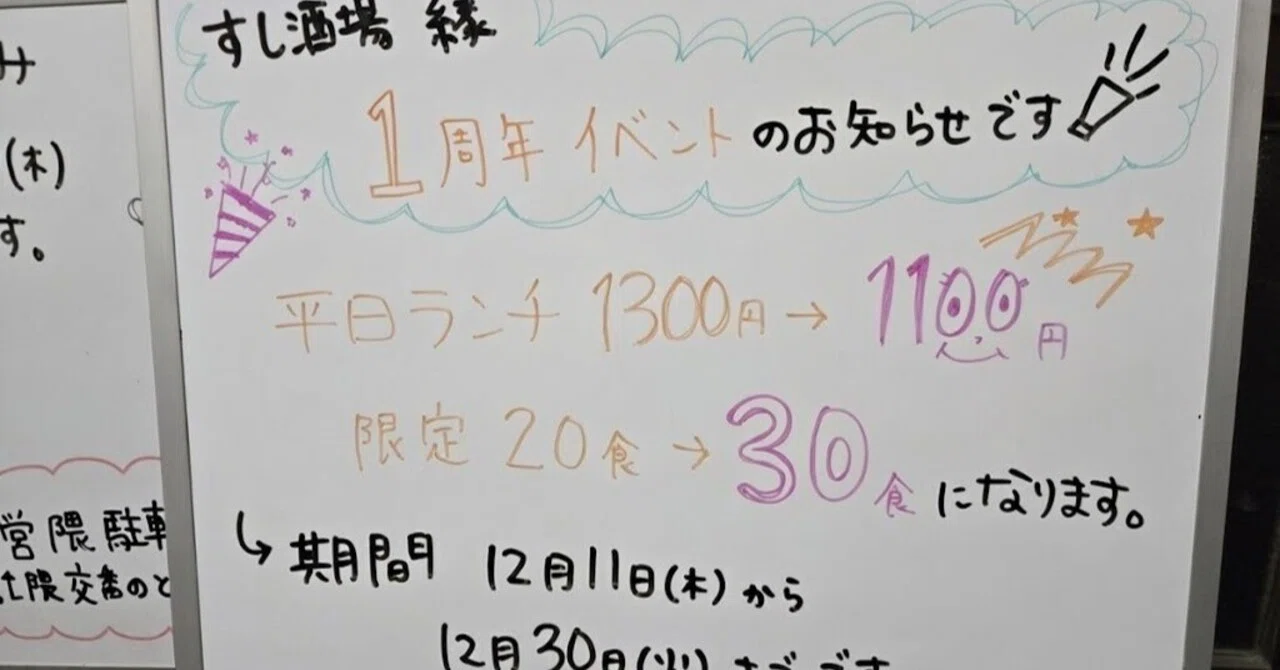 すし酒場 縁
1周年 イベントのお知らせです
平日ランチ 1300円→1100円
限定 20食→30食になります。
↳期間 12月11日(木)から
12月30日(火)までです
み
(木)
す。
営隈駐車
交番のと